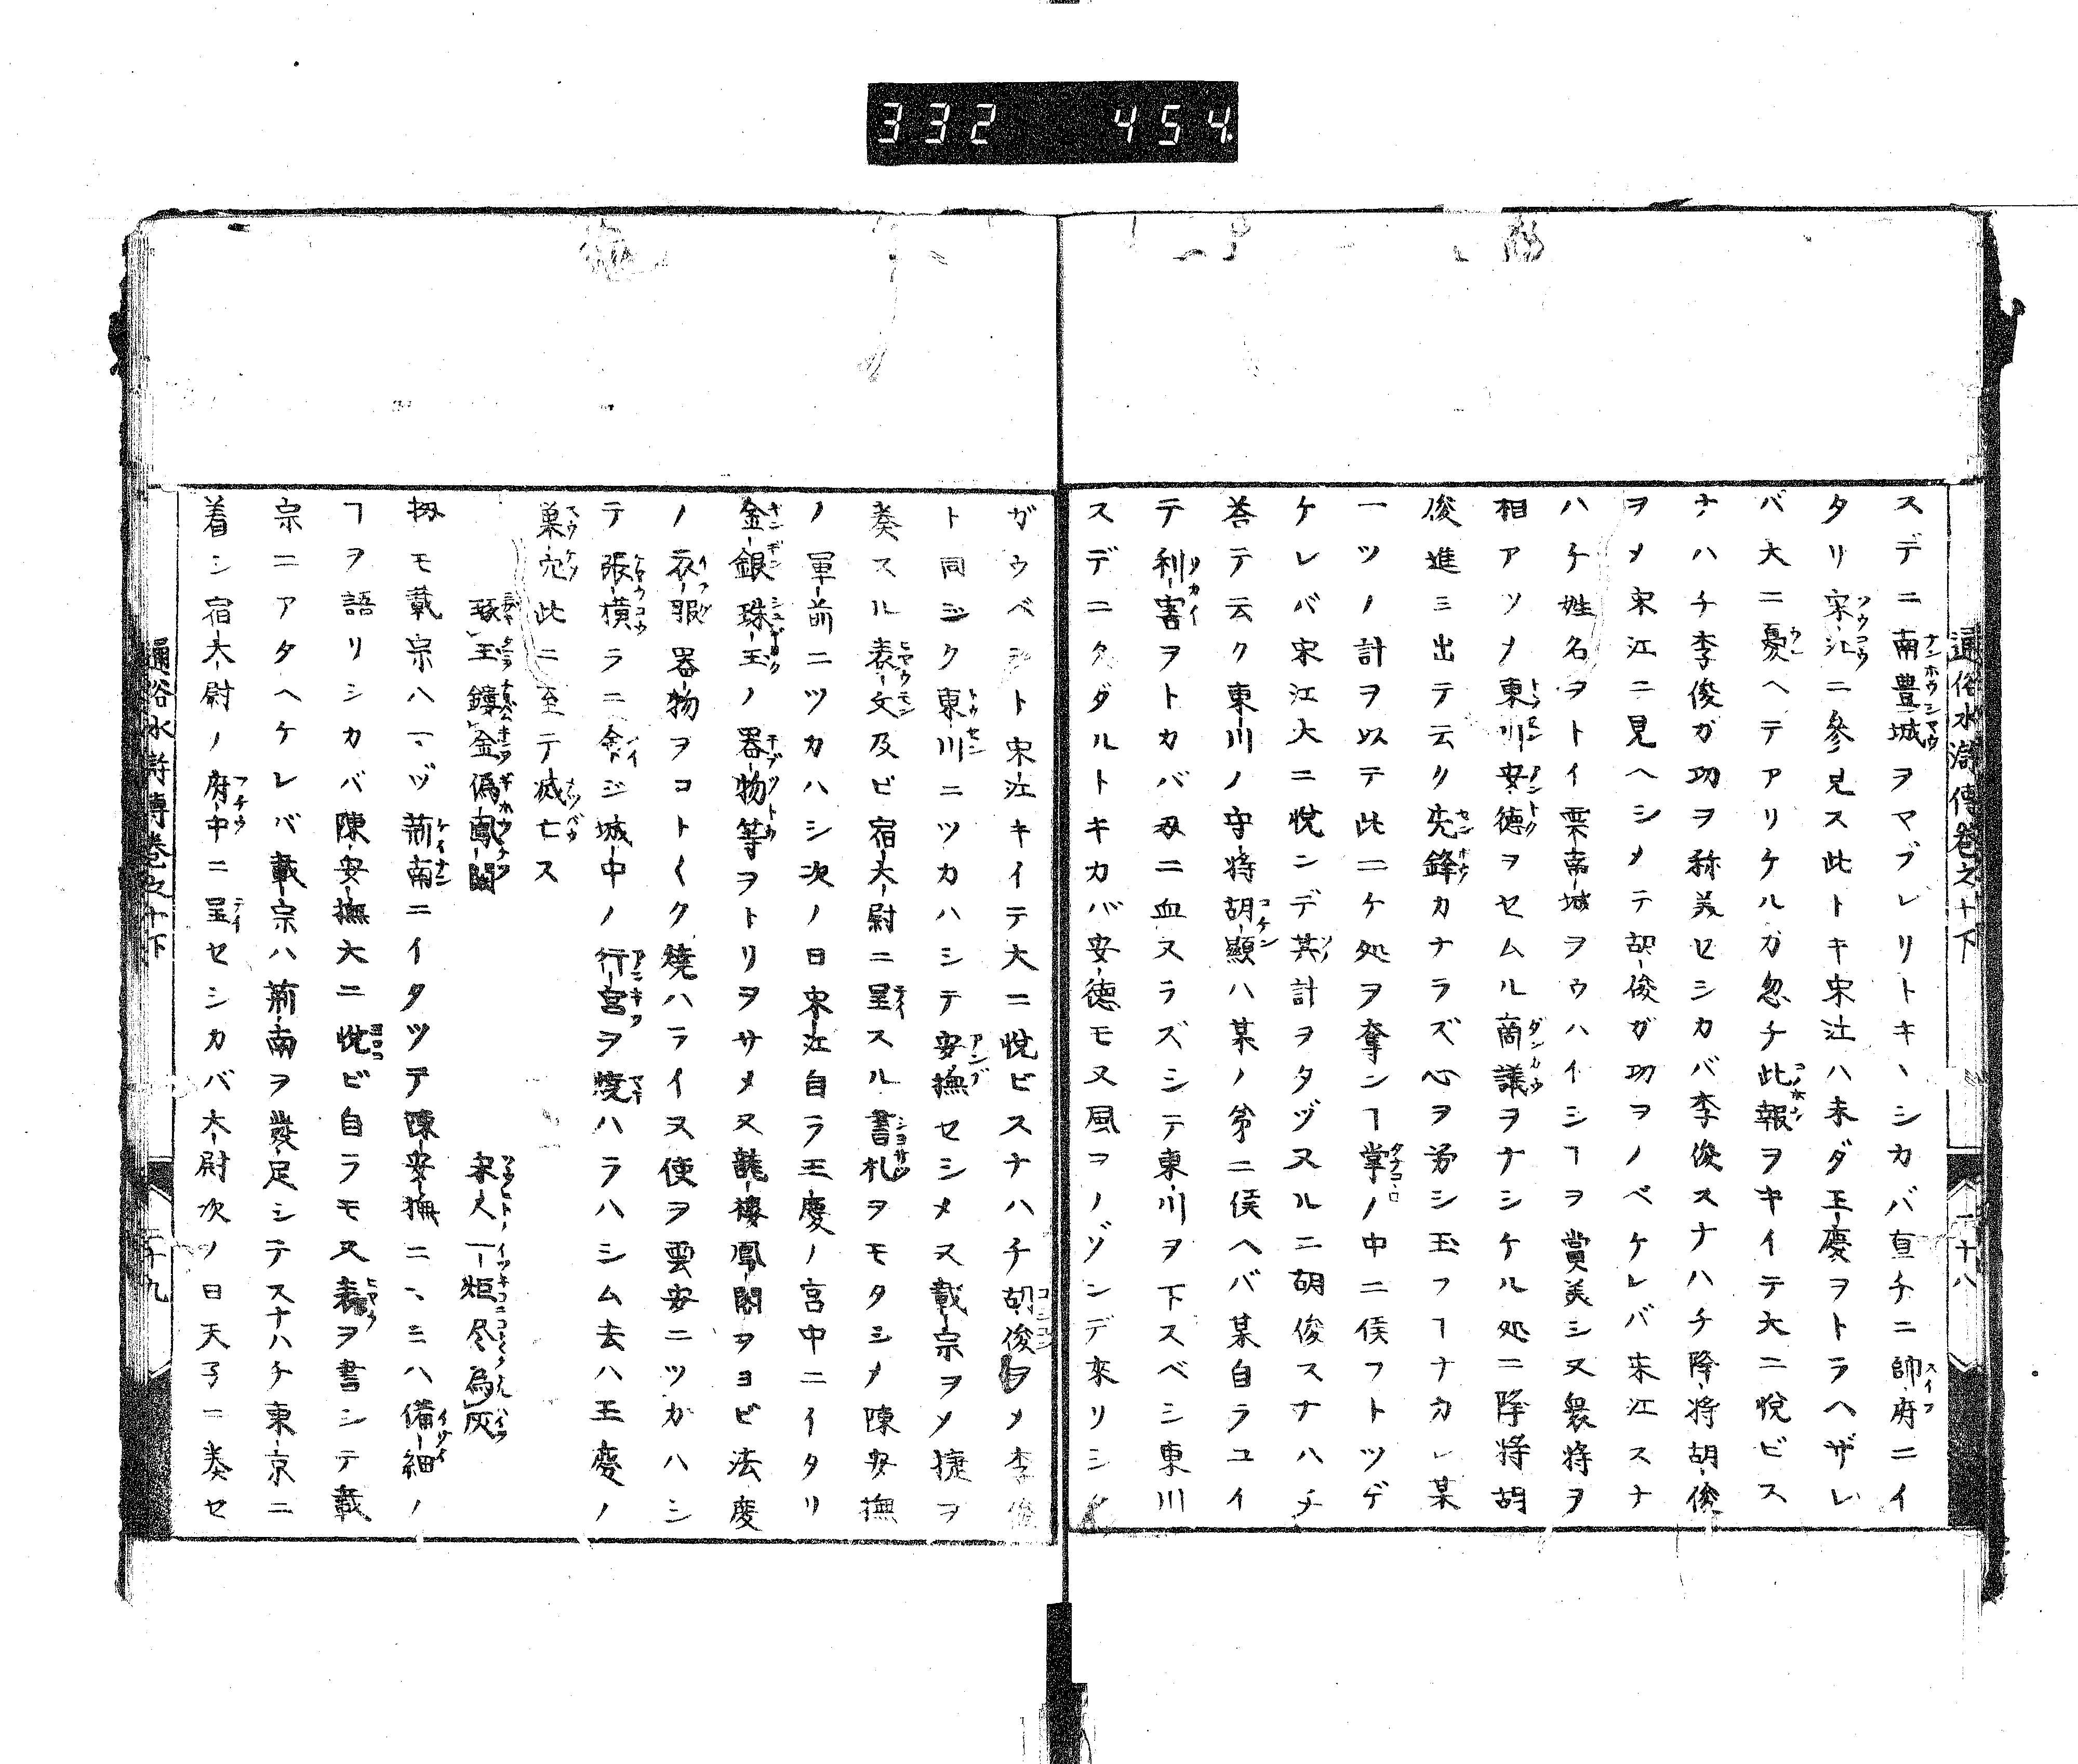 332 454
通俗水滸傳巻之十下
二十八
スデニ南豊城ヲマブレリトキヽシカバ直チニ帥府ニイ
タリ宋江ニ參見ス此トキ宋江ハ未ダ王慶ヲトラヘザレ
バ大ニ憂ヘテアリケルガ忽チ此報ヲキイテ大ニ悦ビス
ナハチ李俊ガ功ヲ称美セシカバ李俊スナハチ降将胡俊
ヲメ宋江ニ見ヘシメテ胡俊ガ功ヲノベケレバ宋江スナ
ハチ姓名ヲトイ雲南城ヲウハイシヿヲ賞美シ又衆将ヲ
相アツメ東川安徳ヲセムル商議ヲナシケル処ニ降将胡
俊進ミ出テ云ク先鋒カナラズ心ヲ労シ玉フヿナカレ某
一ツノ計ヲ以テ此二ケ処ヲ奪ンヿ掌ノ中ニ侯フトツゲ
ケレバ宋江大ニ悦ンデ其計ヲタヅヌルニ胡俊スナハチ
荅テ云ク東川ノ守将胡顯ハ某ノ弟ニ侯ヘバ某自ラユイ
テ利害ヲトカバ刄ニ血ヌラズシテ東川ヲ下スベシ東川
スデニクダルトキカバ安徳モ又風ヲノゾンデ來リシ
ガウベシト宋江キイテ大ニ悦ビスナハチ胡俊ヲメ李俊
ト同ジク東川ニツカハシテ安撫セシメ又載宗ヲメ捷ヲ
奏スル表文及ビ宿太尉ニ呈スル書札ヲモタシメ陳安撫
ノ軍前ニツカハシ次ノ日宋江自ラ王慶ノ宮中ニイタリ
金銀珠玉ノ器物等ヲトリヲサメ又龍樓鳳閣ヲヨビ法度
ノ衣服器物ヲコト〱ク燒ハライ又使ヲ雲安ニツガハシ
テ張横ラニ命ジ城中ノ行宮ヲ燒ハラハシム去ハ王慶ノ
巣穴此ニ至テ滅亡ス
琢玉鑲金偽鳳闕　宋人一炬尽為灰
扨モ載宗ハマヅ荊南ニイタツテ陳安撫ニヽミハ備細ノ
ヿヲ語リシカバ陳安撫大ニ悦ビ自ラモ又表ヲ書シテ載
宗ニアタヘケレバ載宗ハ荊南ヲ發足シテスナハチ東京ニ
着シ宿太尉ノ府中ニ呈セシカバ太尉次ノ日天子ニ奏セ
通俗水滸傳巻之十下
二十九